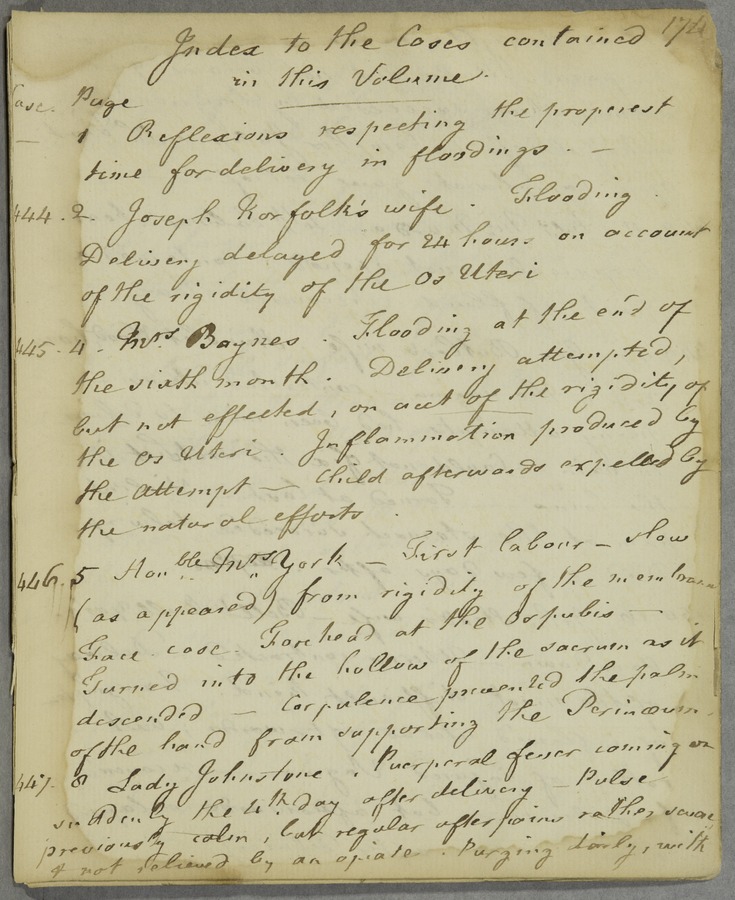 174
Index to the Cases contained
in this Volume.
Case. Page
— 1 Reflexions respecting the properest
time for delivery in floodings. —
444. 2. Joseph Norfolk's wife. Flooding.
Delivery delayed for 24 hours on account
of the rigidity of the Os Uteri
445. 4. Mrs Baynes. Flooding at the end of
the sixth month. Delivery attempted,
but not effected, on acct of the rigidity of
the Os Uteri. Inflammation produced by
the attempt — Child afterwards expelled by
the natural efforts.
446. 5 Honble Mrs York — First labour — slow
(as appeared) from rigidity of the membranes
Face case. Forehead at the Os pubis —
Turned into the hollow of the sacrum as it
descended — Corpulence prevented the palm
of the hand from supporting the Perinæum.
447. 8 Lady Johnstone. Puerperal fever coming on
suddenly the 4th day after delivery — Pulse
previously calm, but regular afterpains rather severe,
& not relieved by an opiate. Purging early, with